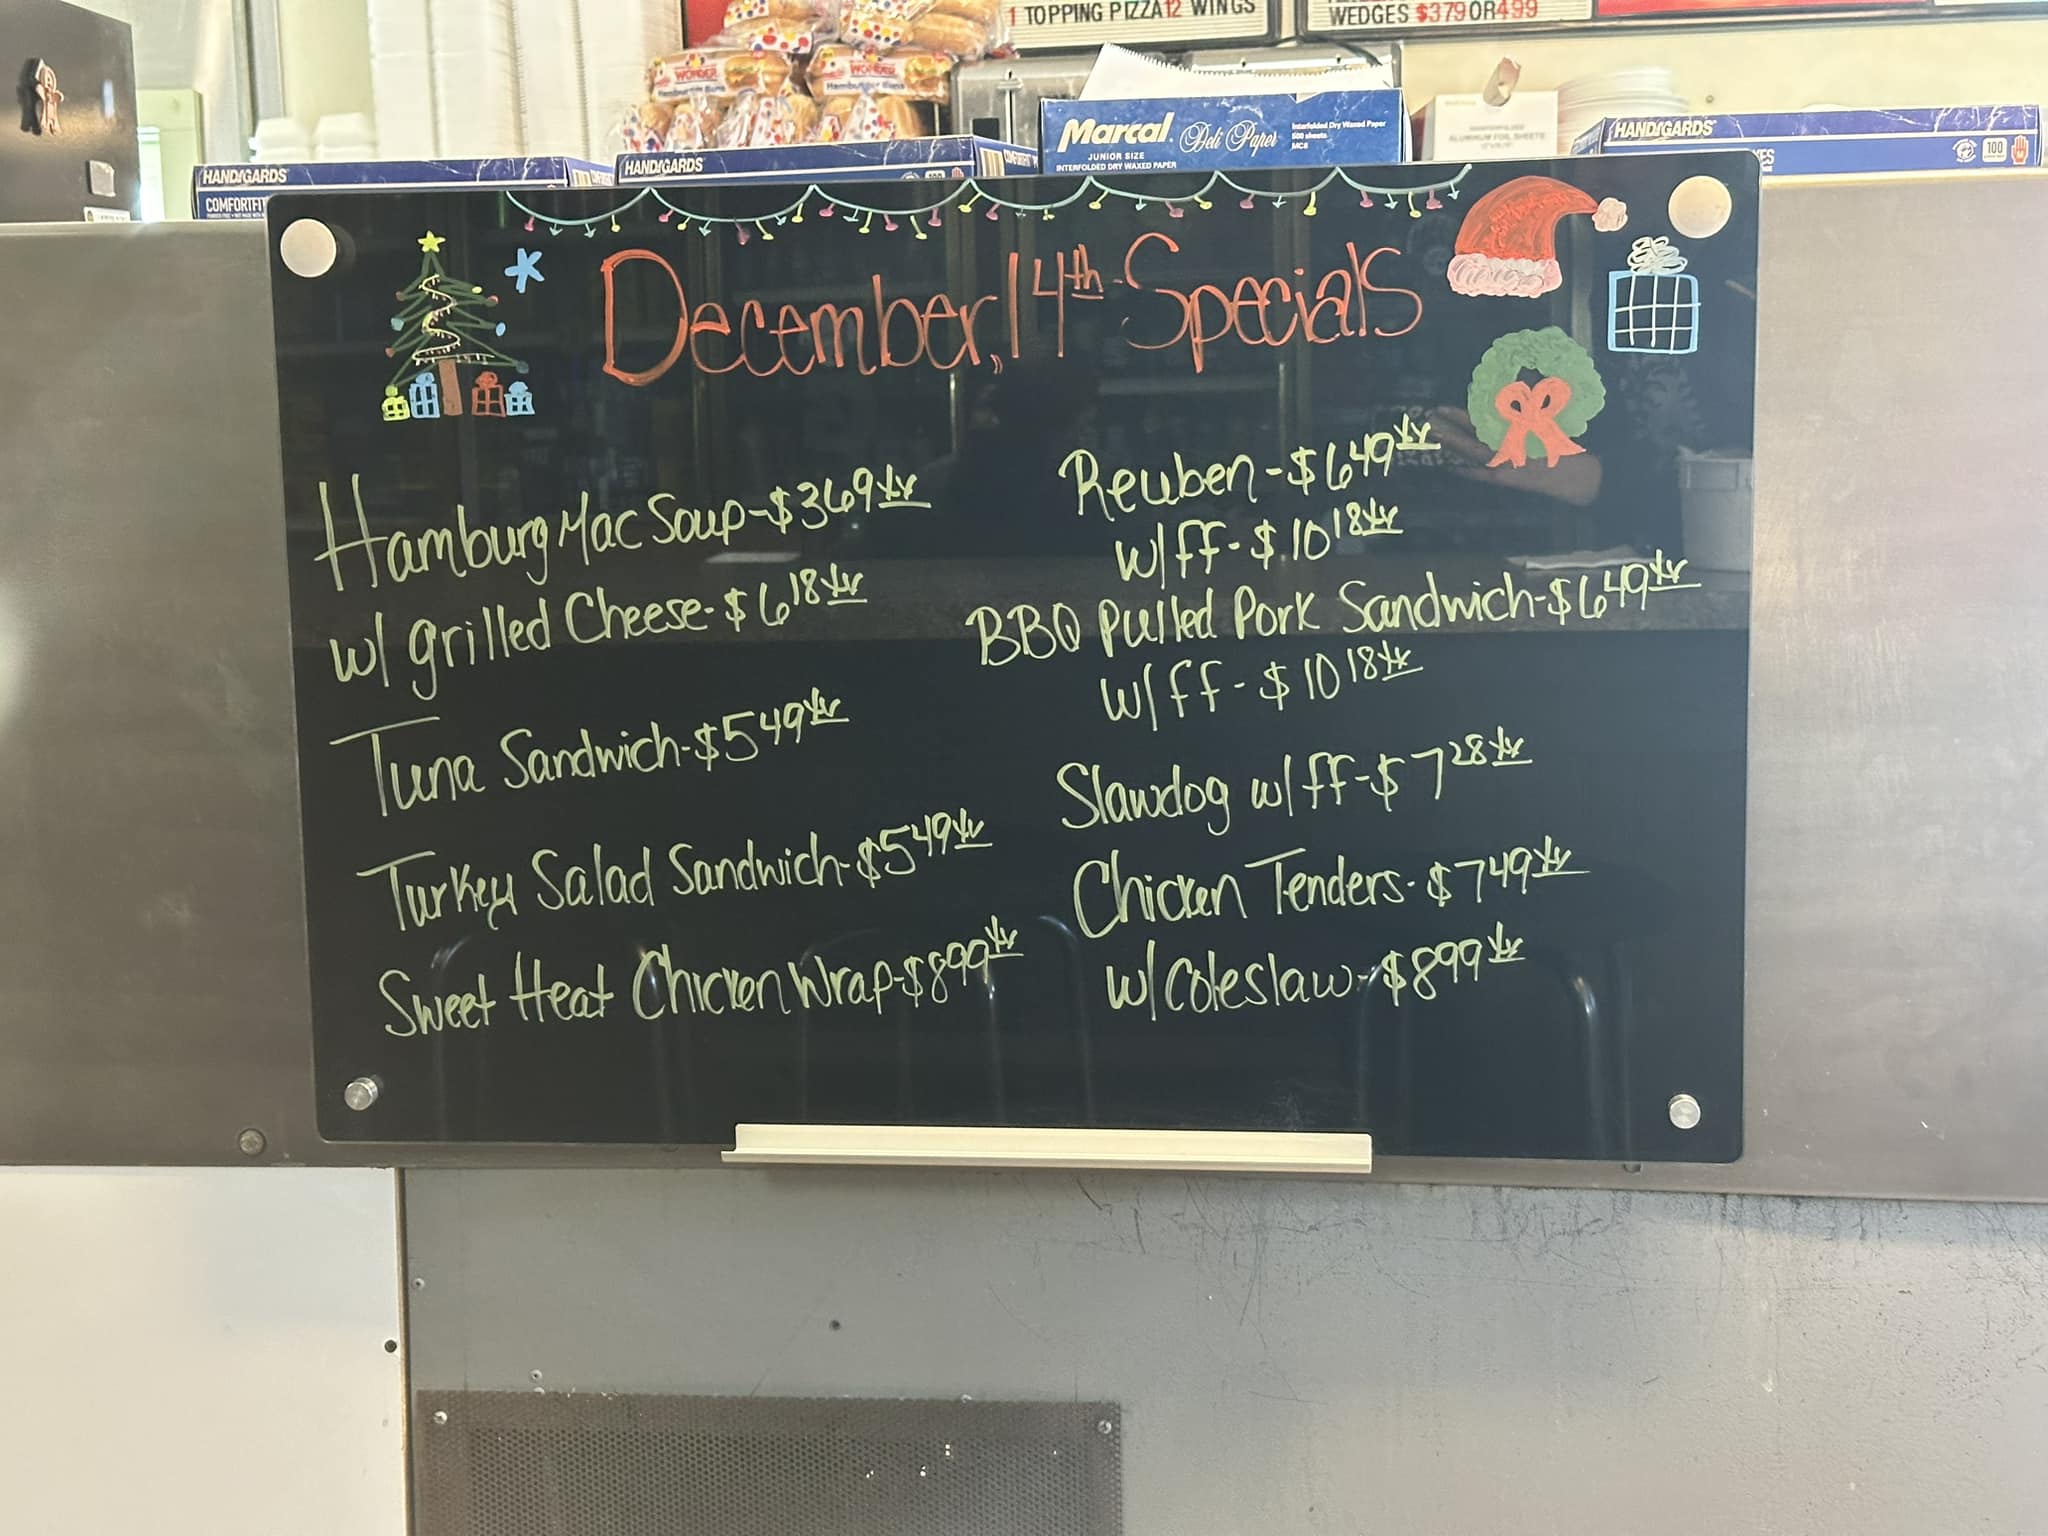 1 TOPPING PIZZA 12 WINGS
WEDGES $379 OR 499
WONDER
Hamburger Buns
WONDER
Hamburger Buns
Marcal Deli Paper
JUNIOR SIZE
INTERFOLDED DRY WAXED PAPER
Interfolded Dry Waxed Paper
500 sheets
MC8
ALUMINUM FOIL SHEETS
HANDIGARDS
COMFORTFI
HANDIGARDS
HANDIGARDS
100
December, 14th Specials
Hamburg Mac Soup - $3.69
w/ grilled Cheese - $6.18
Tuna Sandwich - $5.49
Turkey Salad Sandwich - $5.49
Sweet Heat Chicken Wrap - $8.99
Reuben - $6.49
w/ff - $10.18
BBQ Pulled Pork Sandwich - $6.49
w/ff - $10.18
Slawdog w/ff - $7.28
Chicken Tenders - $7.49
w/ Coleslaw - $8.99